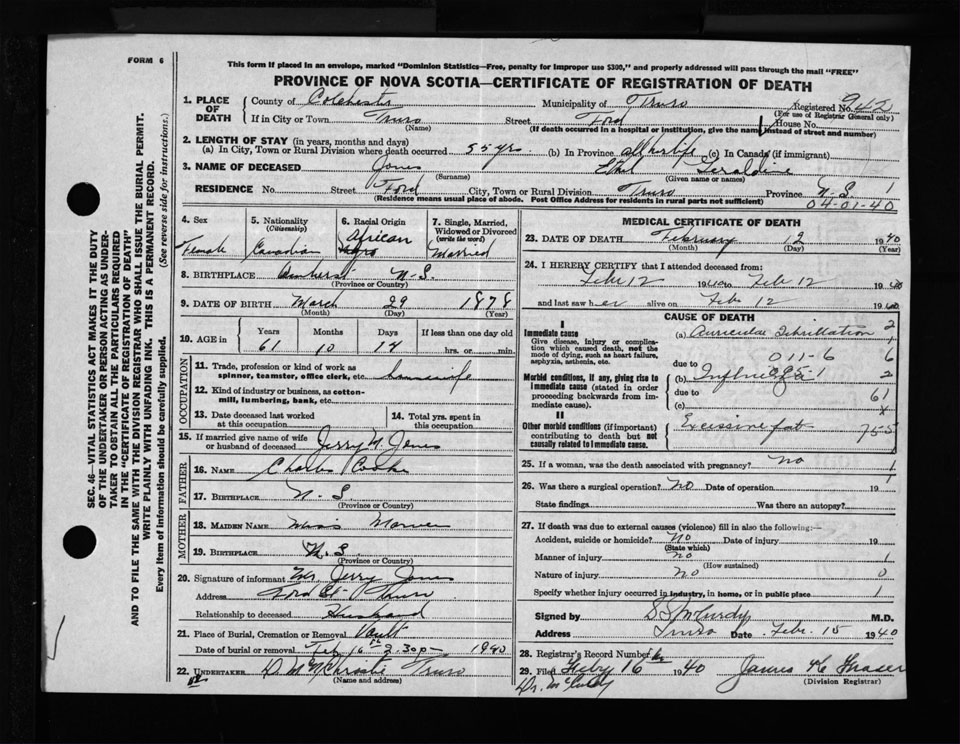 FORM 6
This form if placed in an envelope, marked "Dominion Statistics—Free, penalty for improper use $300," and properly addressed will pass through the mail "FREE"
PROVINCE OF NOVA SCOTIA—CERTIFICATE OF REGISTRATION OF DEATH
1. PLACE OF DEATH { County of Colchester Municipality of Truro Registered No. 942
(For use of Registrar General only)
If in City or Town Truro Street Ford House No.
(Name) (If death occurred in a hospital or institution, give the name instead of street and number)
2. LENGTH OF STAY (in years, months and days)
(a) In City, Town or Rural Division where death occurred 55 yrs. (b) In Province all her life (c) In Canada (if immigrant)
3. NAME OF DECEASED Jones Ethel Geraldine
(Surname) (Given name or names)
RESIDENCE No. Street Ford City, Town or Rural Division Truro Province N.S. 1
(Residence means usual place of abode. Post Office Address for residents in rural parts not sufficient) 04-01-40
4. Sex 5. Nationality (Citizenship) 6. Racial Origin 7. Single, Married, Widowed or Divorced (write the word)
Female Canadian African Married
8. BIRTHPLACE Amherst N.S.
(Province or Country)
9. DATE OF BIRTH March 29 1878
(Month) (Day) (Year)
10. AGE in { Years Months Days If less than one day old
61 10 14 hrs. or min.
OCCUPATION
11. Trade, profession or kind of work as spinner, teamster, office clerk, etc. housewife
12. Kind of industry or business, as cotton-mill, lumbering, bank, etc.
13. Date deceased last worked at this occupation 14. Total yrs. spent in this occupation
15. If married give name of wife or husband of deceased Jerry M. Jones
FATHER
16. NAME Charles Cooke
17. BIRTHPLACE N.S.
(Province or Country)
MOTHER
18. MAIDEN NAME
19. BIRTHPLACE N.S.
(Province or Country)
20. Signature of informant Mr. Jerry Jones
Address Ford St Truro
Relationship to deceased Husband
21. Place of Burial, Cremation or Removal Vault
Date of burial or removal Feb 16 2.30 p 1940
22. UNDERTAKER Truro
(Name and address)
MEDICAL CERTIFICATE OF DEATH
23. DATE OF DEATH February 12 1940
(Month) (Day) (Year)
24. I HEREBY CERTIFY that I attended deceased from:
Feb 12 1940 to Feb 12 1940
and last saw her alive on Feb 12 1940
CAUSE OF DEATH
I
Immediate cause (a) Auricular Fibrillation 2
Give disease, injury or complication which caused death, not the mode of dying, such as heart failure, asphyxia, asthenia, etc.
due to 011-6 6
Morbid conditions, if any, giving rise to immediate cause (stated in order proceeding backwards from immediate cause). (b) Influenza 095-1 2
due to 61
(c)
II
Other morbid conditions (if important) contributing to death but not causally related to immediate cause. Excessive fat 755
25. If a woman, was the death associated with pregnancy? no 1
26. Was there a surgical operation? No Date of operation 19 1
State findings Was there an autopsy?
27. If death was due to external causes (violence) fill in also the following:—
Accident, suicide or homicide? No Date of injury 19
(State which)
Manner of injury no 1
(How sustained)
Nature of injury no 0
Specify whether injury occurred in industry, in home, or in public place 1
Signed by S.L. McCurdy M.D.
Address Truro Date Feb. 15 1940
28. Registrar's Record Number
29. Filed Feby 16 1940 James
(Division Registrar)
Dr. McCurdy
SEC. 46—VITAL STATISTICS ACT MAKES IT THE DUTY OF THE UNDERTAKER OR PERSON ACTING AS UNDERTAKER TO OBTAIN ALL THE PARTICULARS REQUIRED IN THE "CERTIFICATE OF REGISTRATION OF DEATH" AND TO FILE THE SAME WITH THE DIVISION REGISTRAR WHO SHALL ISSUE THE BURIAL PERMIT.
WRITE PLAINLY WITH UNFADING INK. THIS IS A PERMANENT RECORD.
Every item of information should be carefully supplied. (See reverse side for instructions.)